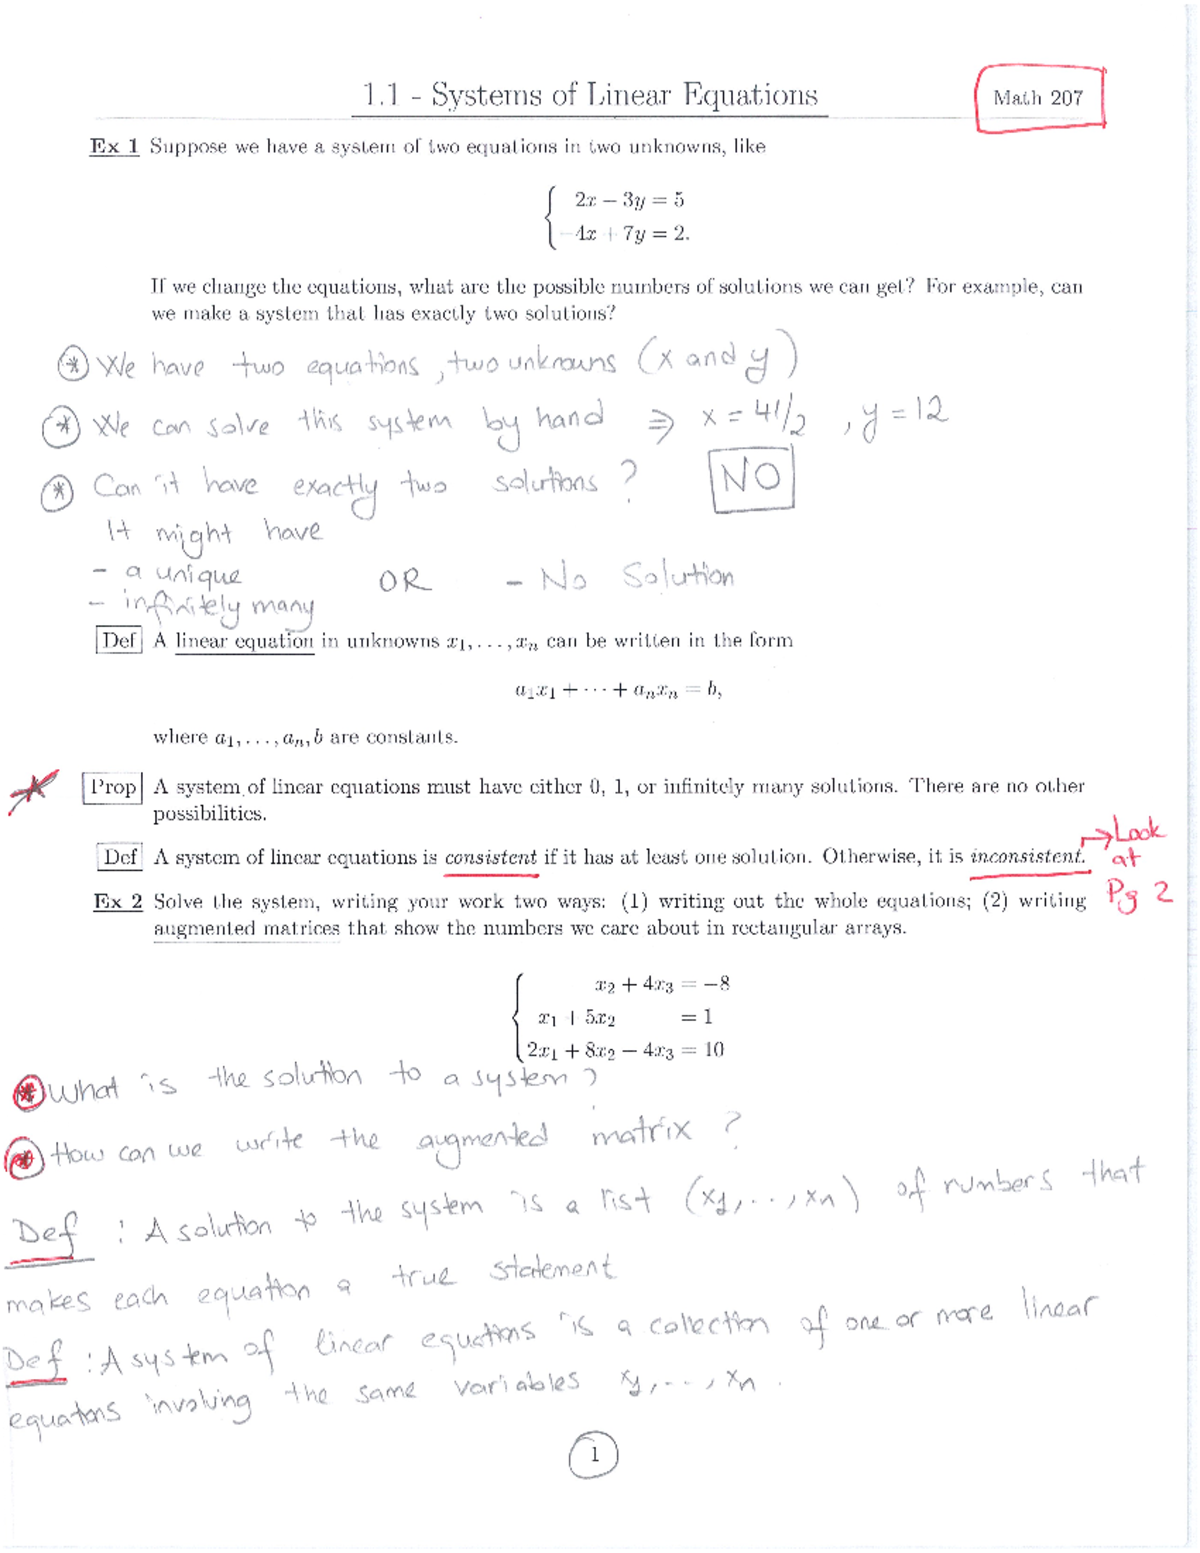 1.1 - Systems of Linear Equations
Math 207
Ex 1 Suppose we have a system of two equations in two unknowns, like
2x − 3y = 5
−4x + 7y = 2.
If we change the equations, what are the possible numbers of solutions we can get? For example, can
we make a system that has exactly two solutions?
* We have two equations, two unknowns (x and y)
* We can solve this system by hand ⇒ x = 41/2 , y = 12
* Can it have exactly two solutions? NO
It might have
- a unique OR - No Solution
- infinitely many
Def A linear equation in unknowns x₁, . . . , xₙ can be written in the form
a₁x₁ + · · · + aₙxₙ = b,
where a₁, . . . , aₙ, b are constants.
* Prop A system of linear equations must have either 0, 1, or infinitely many solutions. There are no other
possibilities.
Def A system of linear equations is consistent if it has at least one solution. Otherwise, it is inconsistent.
→ Look
at
Pg 2
Ex 2 Solve the system, writing your work two ways: (1) writing out the whole equations; (2) writing
augmented matrices that show the numbers we care about in rectangular arrays.
x₂ + 4x₃ = −8
x₁ + 5x₂ = 1
2x₁ + 8x₂ − 4x₃ = 10
* What is the solution to a system?
* How can we write the augmented matrix?
Def : A solution to the system is a list (x₁, . . , xₙ) of numbers that
makes each equation a true statement
Def : A system of linear equations is a collection of one or more linear
equations involving the same variables x₁, - - , xₙ .
1